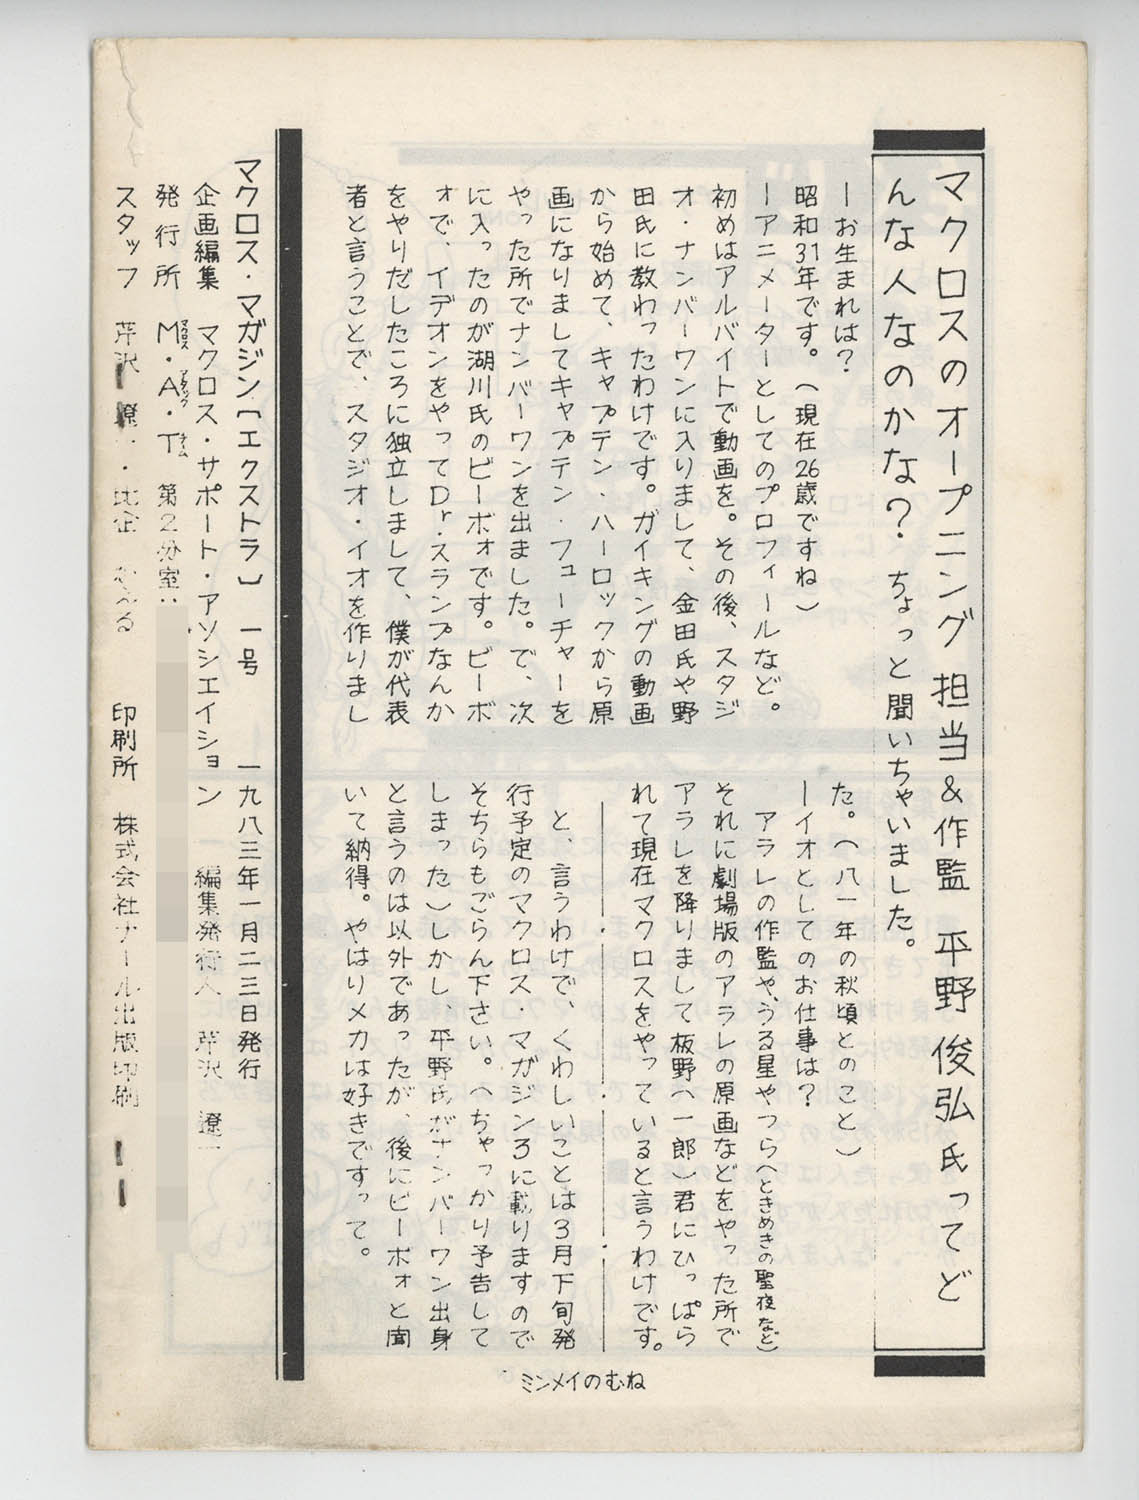 マクロスのオープニング担当&作監 平野俊弘氏ってど
んな人なのかな?・ちょっと聞いちゃいました。
ーお生まれは?
昭和31年です。(現在26歳ですね)
ーアニメーターとしてのプロフィールなど。
初めはアルバイトで動画を。その後、スタジ
オ・ナンバーワンに入りまして、金田氏や野
田氏に教わったわけです。ガイキングの動画
から始めて、キャプテン・ハーロックから原
画になりましてキャプテン・フューチャーを
やった所でナンバーワンを出ました。で、次
に入ったのが湖川氏のビーボォです。ビーボ
ォで、イデオンをやってDr.スランプなんか
をやりだしたころに独立しまして、僕が代表
者と言うことで、スタジオ・イオを作りまし
た。(八一年の秋頃とのこと)
ーイオとしてのお仕事は?
アラレの作監や、うる星やつら(ときめきの聖夜など)
それに劇場版のアラレの原画などをやった所で
アラレを降りまして板野(一郎)君にひっぱら
れて現在マクロスをやっていると言うわけです。
と、言うわけで、くわしいことは3月下旬発
行予定のマクロス・マガジン3に載りますので
そちらもごらん下さい。(ちゃっかり予告して
しまった)しかし、平野氏がナンバーワン出身
と言うのは以外であったが、後にビーボォと聞
いて納得。やはりメカは好きですって。
マクロス・マガジン〔エクストラ〕 一号 一九八三年一月二三日発行
企画編集 マクロス・サポート・アソシエイション 編集発行人 芹沢 遼一
発行所 M・A・T 第2分室
マクロス アタック チーム
スタッフ 芹沢 遼一・比企 印刷所 株式会社ナール出版印刷
ミンメイのむね